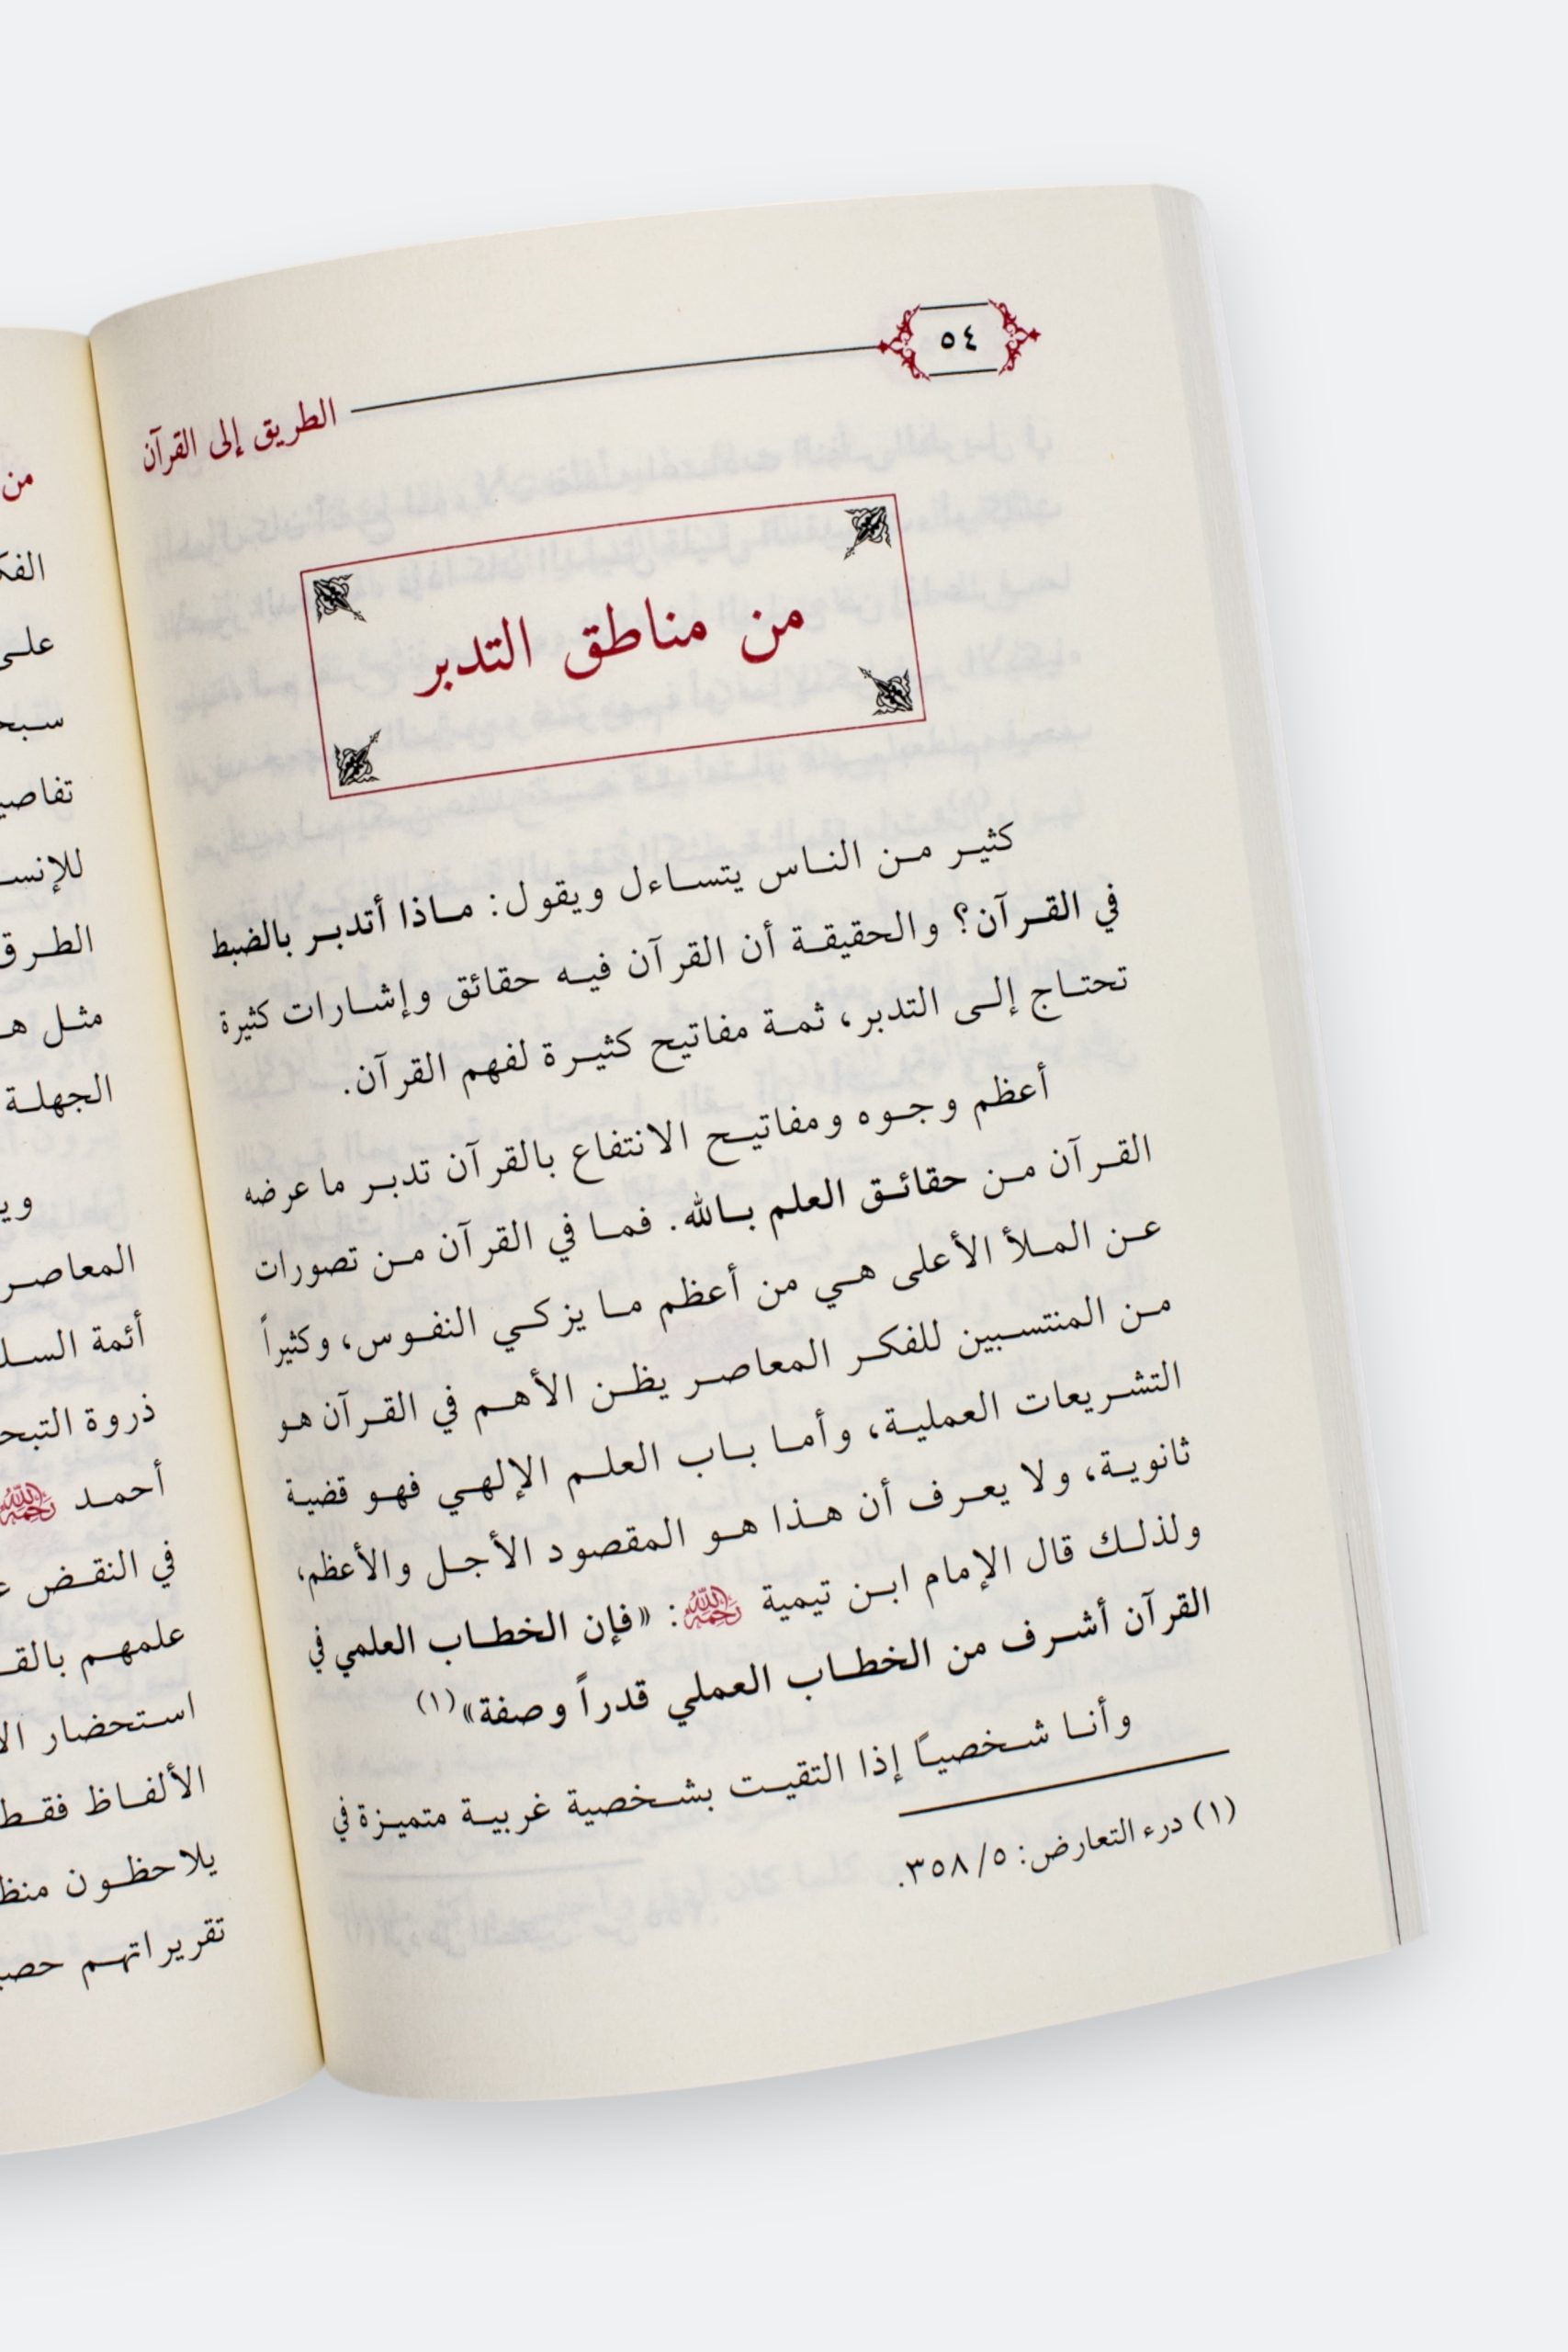 ٥٤
الطريق إلى القرآن
من مناطق التدبر
كثيـر مـن النـاس يتسـاءل ويقول: مـاذا أتدبـر بالضبط
في القـرآن؟ والحقيقـة أن القرآن فيـه حقائق وإشـارات كثيرة
تحتـاج إلـى التدبر، ثمـة مفاتيح كثيـرة لفهم القرآن.
أعظم وجـوه ومفاتيـح الانتفاع بالقرآن تدبـر ما عرضه
القـرآن مـن حقائـق العلم بـالله. فمـا في القرآن مـن تصورات
عـن المـلأ الأعلى هـي من أعظم مـا يزكـي النفـوس، وكثيراً
مـن المنتسـبين للفكـر المعاصـر يظـن الأهـم في القـرآن هـو
التشـريعات العمليـة، وأمـا بـاب العلـم الإلهـي فهـو قضيـة
ثانويـة، ولا يعـرف أن هـذا هـو المقصود الأجـل والأعظم،
ولذلـك قال الإمام ابـن تيمية رحمه الله: «فإن الخطـاب العلمي في
القرآن أشـرف من الخطـاب العملي قدراً وصفة»(١)
وأنـا شـخصيـاً إذا التقيـت بشـخصية غربيـة متميـزة في
(١) درء التعارض: ٣٥٨/٥.
من
على
للإنسـ
الطـرق
مثـل هـ
الجهلـة
المعاصـر
أئمة السـلـ
ذروة التبحـ
أحمـد رحمه الله
في النقـض عـ
علمهـم بالقـ
اسـتحضار الا
الألفـاظ فقـط
يلاحظـون منظـ
تقريراتهـم حصيـ